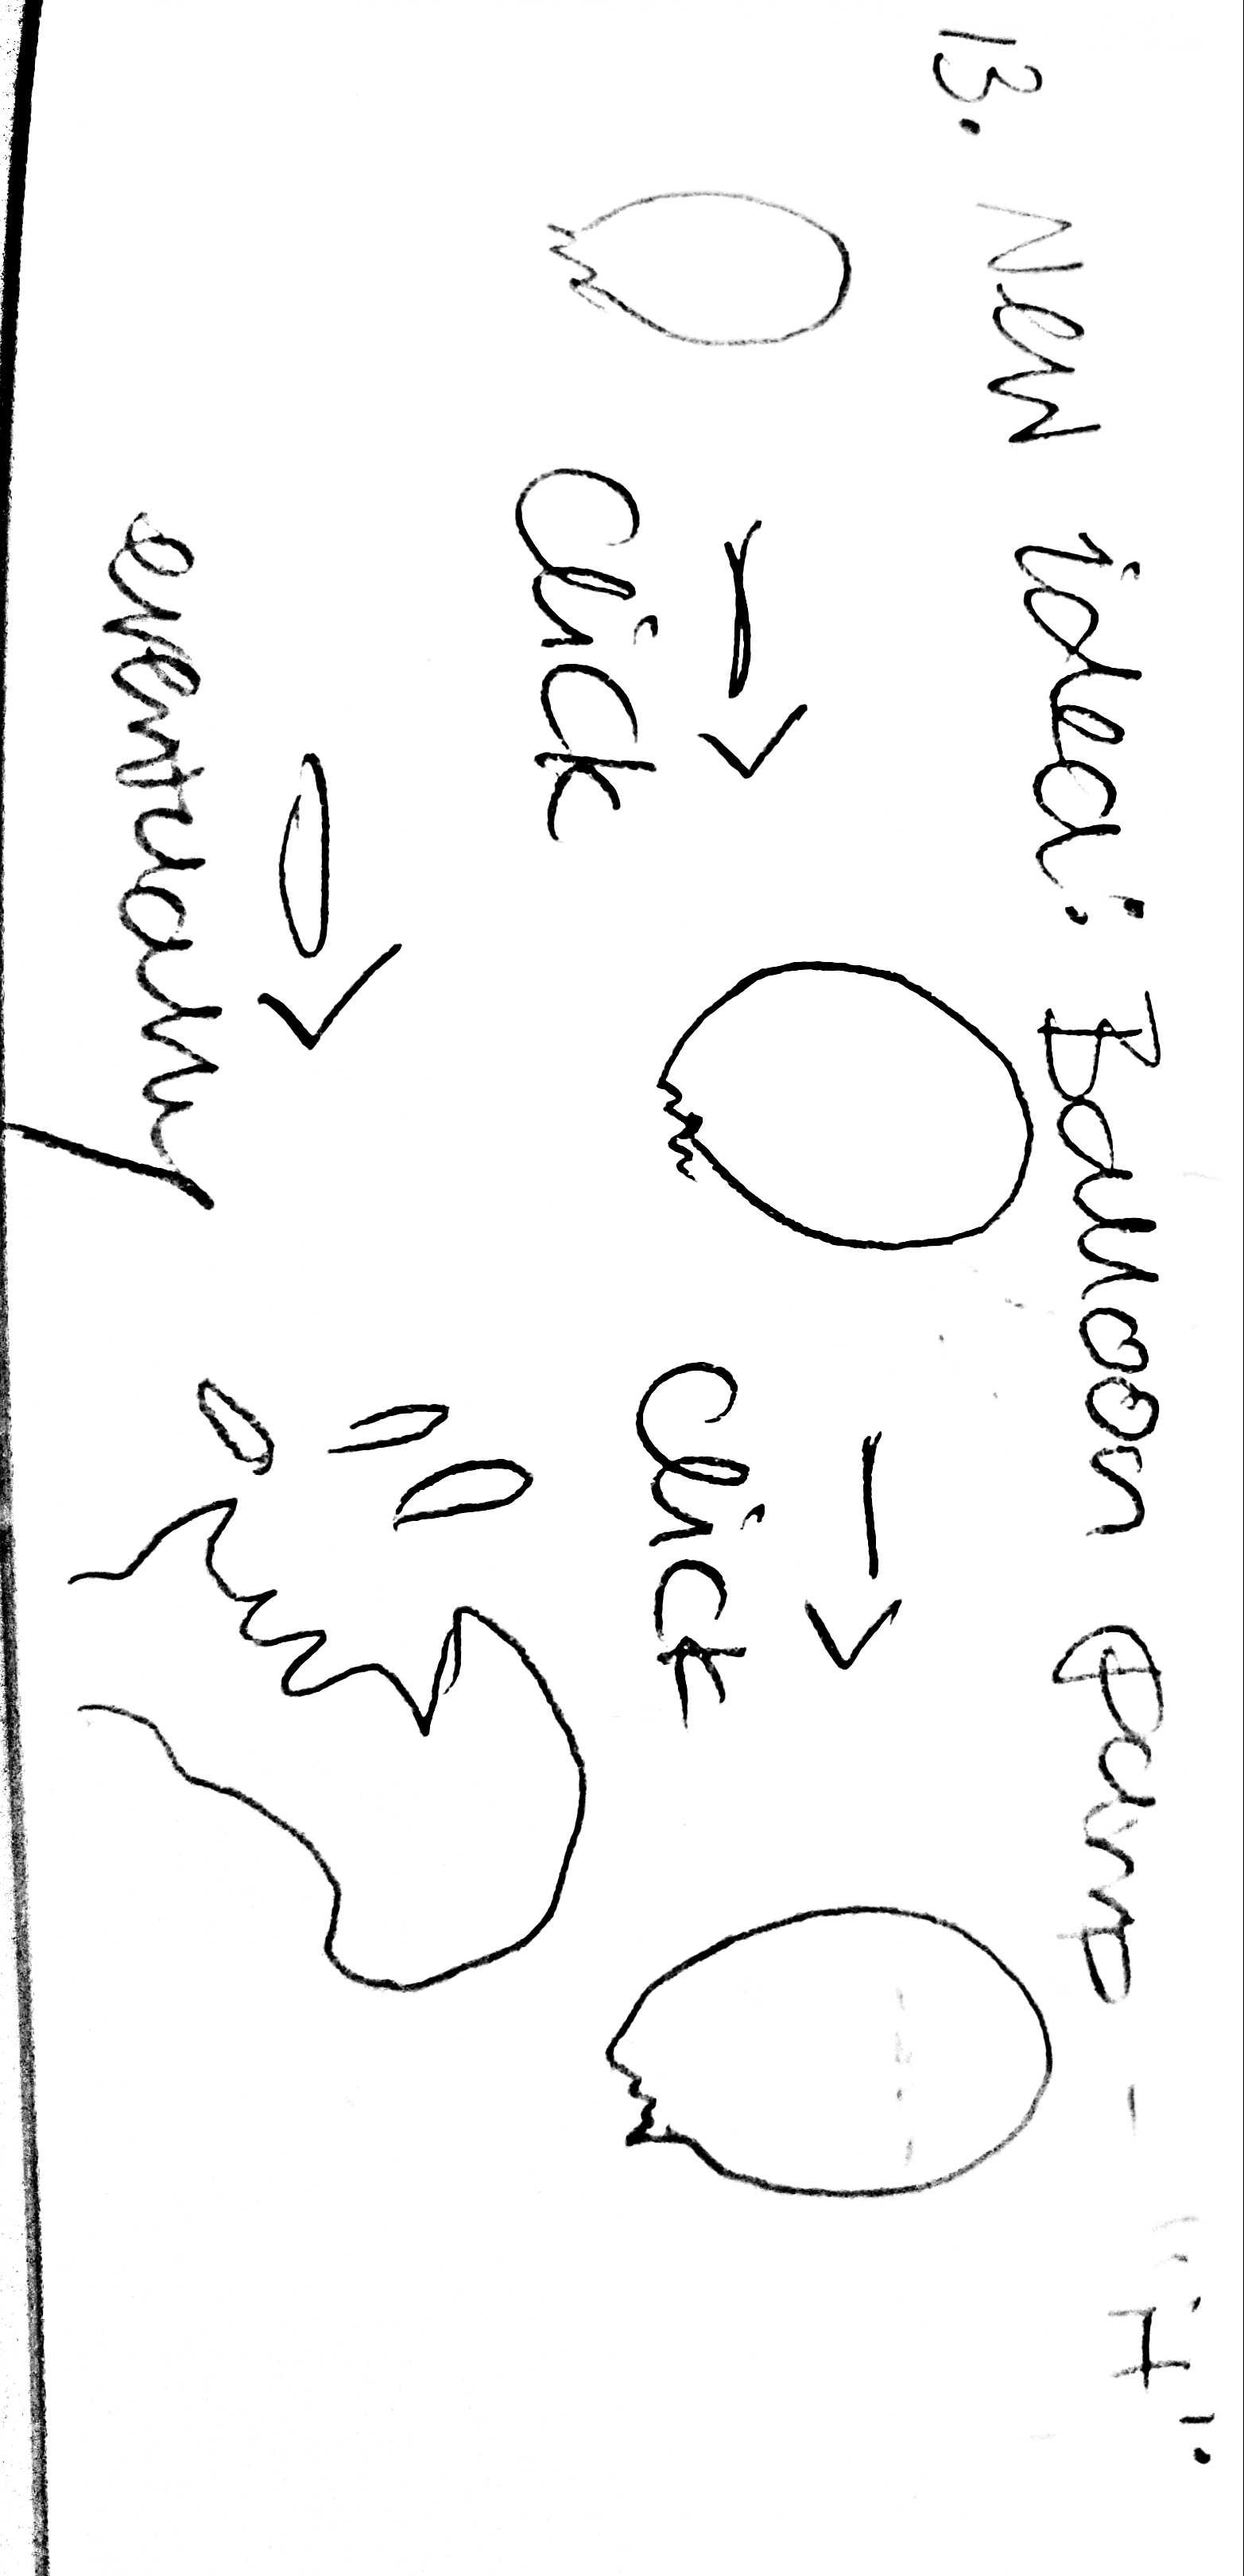 13. New idea: Balloon pump - "it".
click
click
eventually